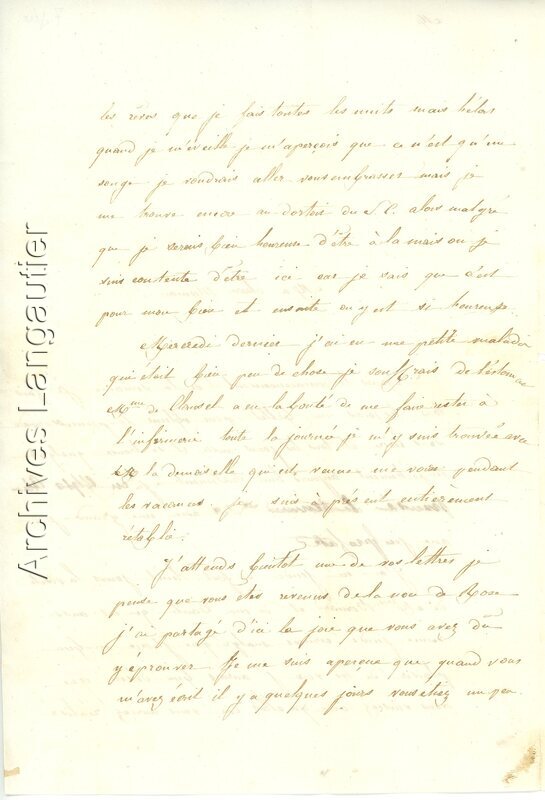 les rêves que je fais toutes les nuits mais hélas
quand je m'éveille je m'aperçois que ce n'est qu'un
songe je voudrais aller vous embrasser mais je
me trouve encore au dortoir du S C. alors malgré
que je serais bien heureuse d'être à la maison je
suis contente d'être ici car je sais que c'est
pour mon bien et ensuite on y est si heureuse.
Mercredi dernier j'ai eu une petite maladie
qui était bien peu de chose je souffrais de l'estomac
Mme de a eu la bonté de me faire rester à
l'infirmerie toute la journée je m'y suis trouvée avec
la demoiselle qui est venue me voir pendant
les vacances. je suis à présent entièrement
rétablie.
J'attends bientot une de vos lettres je
pense que vous êtes revenus de la de Rose
j'ai partagé d'ici la joie que vous avez dû
y éprouver. Je me suis aperçue que quand vous
m'avez écrit il y a quelques jours vous étiez un peu
Archives Langautier